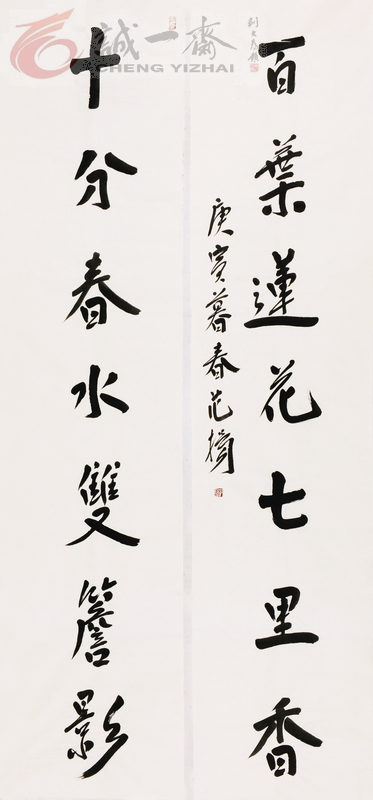 百葉蓮花七里香
庚寅暮春范
十分春水雙簷影
誠一齋
CHENG YIZHAI